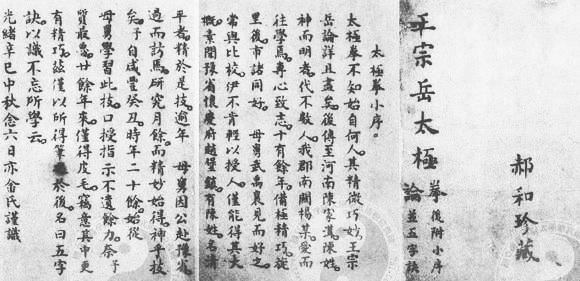 郝和珍藏
王宗岳太極拳論
後附小序
並五字訣
太極拳小序。
太極拳不知始自何人。其精微巧妙。王宗
岳論詳且盡矣。後傳至河南陳家溝陳姓。
神而明者。代不數人。我郡南關楊某。愛而
往學焉。專心致志。十有餘年。備極精巧。旋
里後。市諸同好。母舅武禹襄見而好之。
常與比較。伊不肯輕以授人。僅能得其大
概。素聞豫省懷慶府趙堡鎮。有陳姓名清
平者。精於是技。逾年。母舅因公赴豫省。
過而訪焉。研究月餘。而精妙始得。神乎技
矣。予自咸豐癸丑。時年二十餘。始從
母舅學習此技。口授指示。不遺餘力。奈予
質最魯。廿餘年來。僅得皮毛。竊意其中更
有精巧。茲僅以所得筆於後。名曰五字
訣。以識不忘所學云。
光緒辛巳中秋念六日亦畬氏謹識